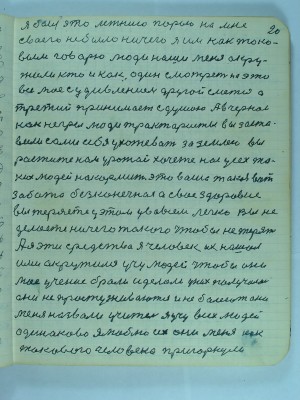 20
я был это летнею порою на мне
своего не было ничего я им как тако-
вым говорю люди наши меня окру-
жили кто и как, один смотрел на это
все мое с удивлением другой смотрел а
третий принимает с душою А вчера
как негры люди трактористы вы заста-
вили сами себя ухаживать за землею вы
растите нам урожай хочете нас усех та-
ких людей накормить это ваша такая вот
забота безконечная а свое здоровие
вы теряете у этом увовсем легко вы не
делаете ничего такого чтобы не терять
А я эти средства я человек их нашол
или окружил я учу людей чтобы они
мое учение брали и делали у них получалось
они не простуживаются и не болеют они
меня назвали учитель я учу всех людей
одинаково я люблю их они меня как
такового человека пригорнули